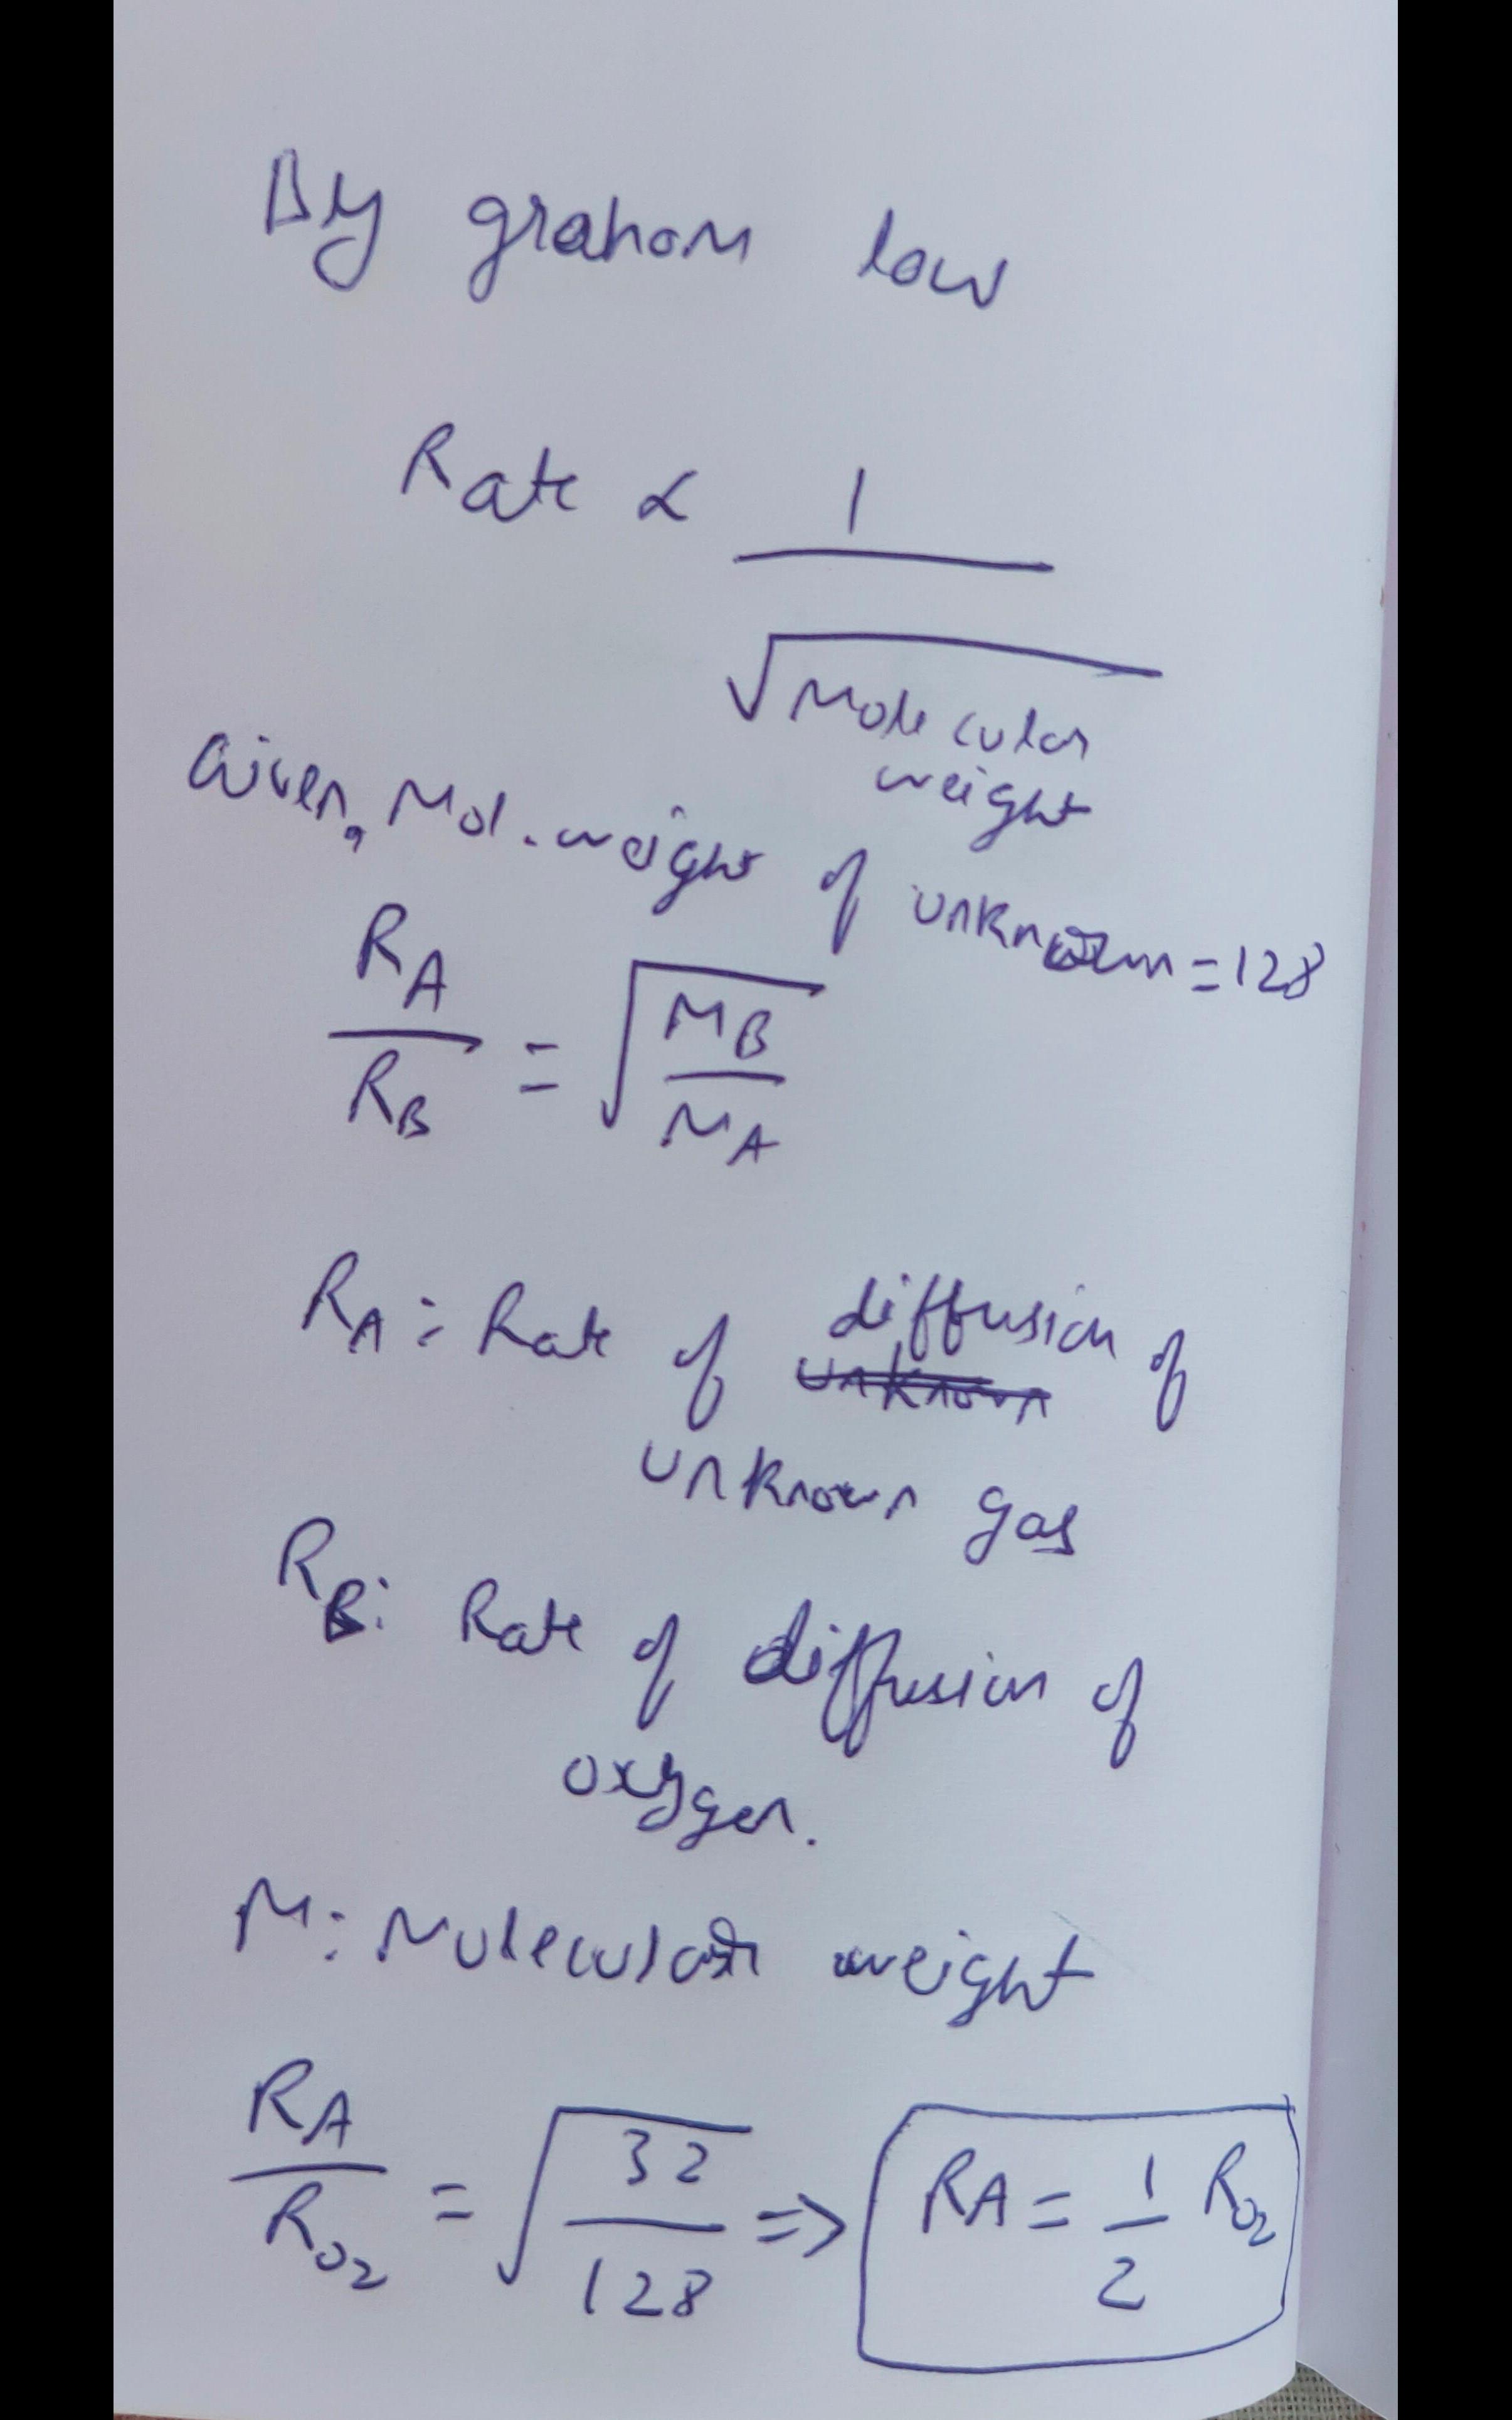 By graham law
Rate ∝ 1
√Molecular
weight
Given, Mol. weight of unknown = 128
R_A / R_B = √(M_B / M_A)
R_A : Rate of diffusion of
unknown
unknown gas
R_B : Rate of diffusion of
oxygen.
M : Molecular weight
R_A / R_O2 = √(32 / 128) => RA = 1/2 R_O2